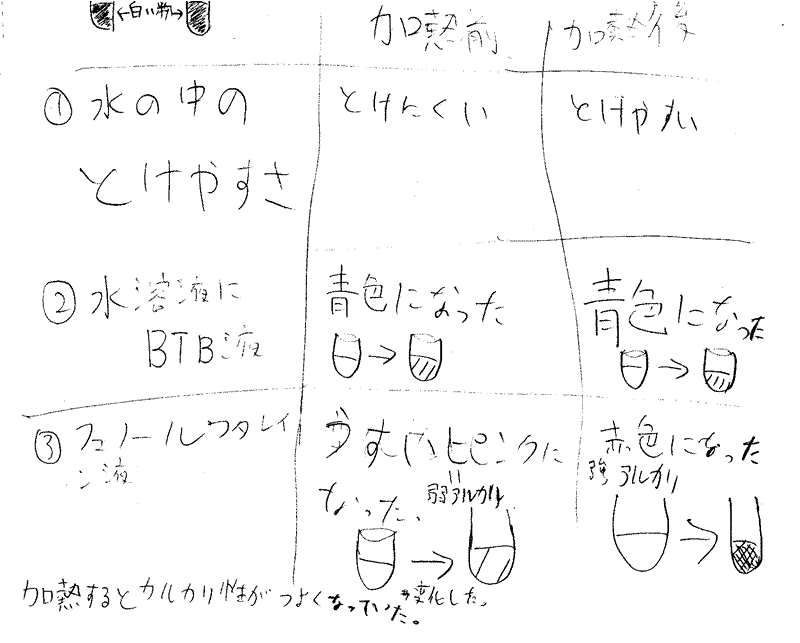 ←白い粉→
加熱前
加熱後
① 水の中の
とけやすさ
とけにくい
とけやすい
② 水溶液に
BTB液
青色になった
青色になった
③ フェノールフタレイ
ン液
うすいピンクに
なった、
弱アルカリ
赤色になった
強アルカリ
加熱するとカルカリ性がつよくなっていた。
変化した。